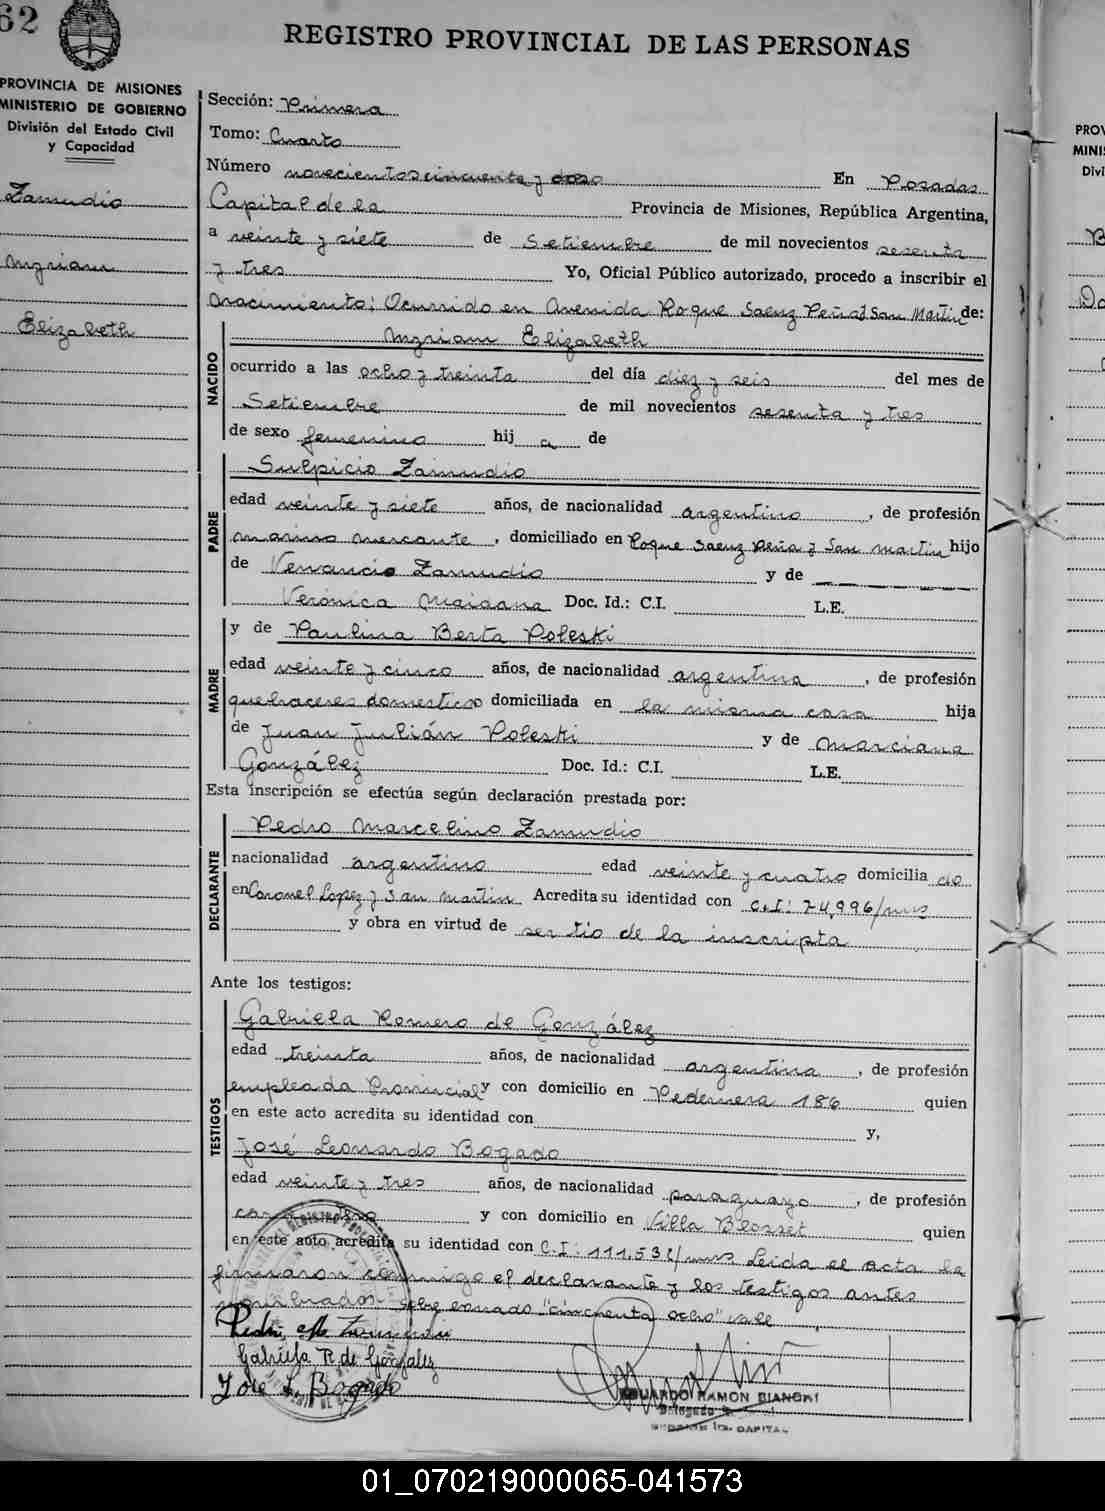 62
REGISTRO PROVINCIAL DE LAS PERSONAS
PROVINCIA DE MISIONES
MINISTERIO DE GOBIERNO
División del Estado Civil
y Capacidad
Zamudio
Myriam
Elizabeth
Sección: Primera
Tomo: Cuarto
Número novecientos cincuenta y doso En Posadas
Capital de la Provincia de Misiones, República Argentina,
a veinte y siete de Setiembre de mil novecientos sesenta
y tres Yo, Oficial Público autorizado, procedo a inscribir el
nacimiento: Ocurrido en Avenida Roque Saenz Peña y San Martin de:
NACIDO
Myriam Elizabeth
ocurrido a las ocho y treinta del día diez y seis del mes de
Setiembre de mil novecientos sesenta y tres
de sexo femenino hij a de
PADRE
Sulpicio Zamudio
edad veinte y siete años, de nacionalidad argentino, de profesión
marino mercante, domiciliado en Roque Saenz Peña y San Martin hijo
de Venancio Zamudio y de
Verónica Maidana Doc. Id.: C.I. L.E.
MADRE
y de Paulina Berta Poleski
edad veinte y cinco años, de nacionalidad argentina, de profesión
quehaceres domestico domiciliada en la misma casa hija
de Juan Julián Poleski y de Marciana
González Doc. Id.: C.I. L.E.
Esta inscripción se efectúa según declaración prestada por:
DECLARANTE
Pedro Marcelino Zamudio
nacionalidad argentino edad veinte y cuatro domicilia do
en Coronel Lopez y San Martin Acredita su identidad con C.I: 74,996/mns
y obra en virtud de ser tio de la inscripta
Ante los testigos:
TESTIGOS
Gabriela Romero de González
edad treinta años, de nacionalidad argentina, de profesión
empleada Provincial y con domicilio en Pedernera 186 quien
en este acto acredita su identidad con y,
José Leonardo Bogado
edad veinte y tres años, de nacionalidad paraguayo, de profesión
y con domicilio en Villa Blosset quien
en este acto acredita su identidad con C.I: Leida el acta la
firmaron conmigo el declarante y los testigos antes
nombrados sobre borrado "cincuenta ocho" vale
Pedro M. Zamudio
Gabriela R. de González
José L. Bogado
EDUARDO RAMON BIANCHI
CAPITAL
PROV
MINIS
Divi
01_070219000065-041573